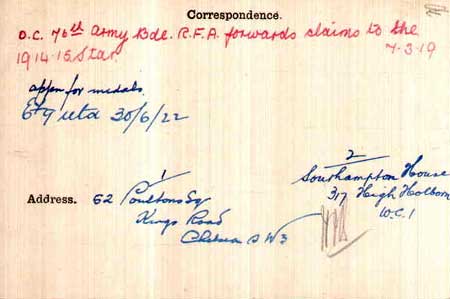 Correspondence.
O.C. 76th Army Bde. R.F.A. forwards claims to the
1914-15 Star. 7-3-19
appn for medals.
retd 30/6/22
1
Address. 62 Poultons Sq
Kings Road
Chelsea SW3
2
Southampton House
317 High Holborn
W.C.1